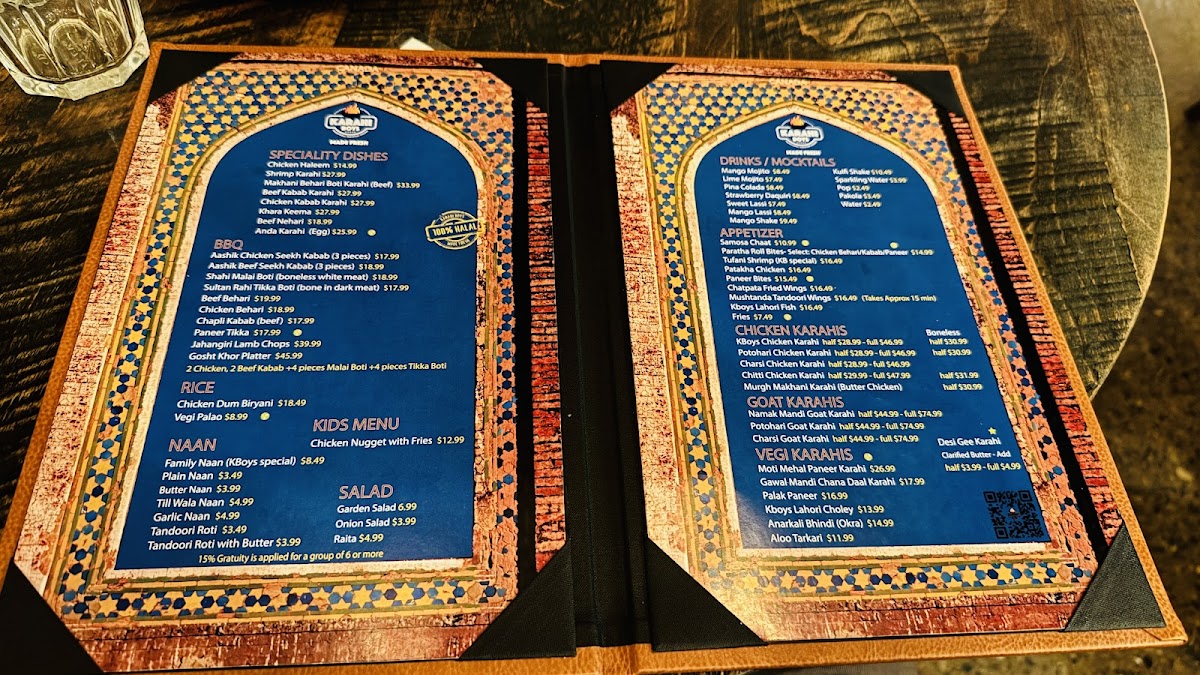 KARAHI
BOYS
MADE FRESH
SPECIALITY DISHES
Chicken Haleem $14.99
Shrimp Karahi $27.99
Makhani Behari Boti Karahi (Beef) $33.99
Beef Kabab Karahi $27.99
Chicken Kabab Karahi $27.99
Khara Keema $27.99
Beef Nehari $18.99
Anda Karahi (Egg) $25.99
KARAHI BOYS
100% HALAL
MADE FRESH
BBQ
Aashik Chicken Seekh Kabab (3 pieces) $17.99
Aashik Beef Seekh Kabab (3 pieces) $18.99
Shahi Malai Boti (boneless white meat) $18.99
Sultan Rahi Tikka Boti (bone in dark meat) $17.99
Beef Behari $19.99
Chicken Behari $18.99
Chapli Kabab (beef) $17.99
Paneer Tikka $17.99
Jahangiri Lamb Chops $39.99
Gosht Khor Platter $45.99
2 Chicken, 2 Beef Kabab +4 pieces Malai Boti +4 pieces Tikka Boti
RICE
Chicken Dum Biryani $18.49
Vegi Palao $8.99
KIDS MENU
Chicken Nugget with Fries $12.99
NAAN
Family Naan (KBoys special) $8.49
Plain Naan $3.49
Butter Naan $3.99
Till Wala Naan $4.99
Garlic Naan $4.99
Tandoori Roti $3.49
Tandoori Roti with Butter $3.99
SALAD
Garden Salad 6.99
Onion Salad $3.99
Raita $4.99
15% Gratuity is applied for a group of 6 or more
KARAHI
BOYS
MADE FRESH
DRINKS / MOCKTAILS
Mango Mojito $8.49
Lime Mojito $7.49
Pina Colada $8.49
Strawberry Daquiri $8.49
Sweet Lassi $7.49
Mango Lassi $8.49
Mango Shake $9.49
Kulfi Shake $10.49
Sparkling Water $3.99
Pop $2.49
Pakola $3.49
Water $2.49
APPETIZER
Samosa Chaat $10.99
Paratha Roll Bites- Select: Chicken Behari/Kabab/Paneer $14.99
Tufani Shrimp (KB special) $16.49
Patakha Chicken $16.49
Paneer Bites $15.49
Chatpata Fried Wings $16.49
Mushtanda Tandoori Wings $16.49 (Takes Approx 15 min)
Kboys Lahori Fish $16.49
Fries $7.49
CHICKEN KARAHIS Boneless
KBoys Chicken Karahi half $28.99 - full $46.99 half $30.99
Potohari Chicken Karahi half $28.99 - full $46.99 half $30.99
Charsi Chicken Karahi half $28.99 - full $46.99
Chitti Chicken Karahi half $29.99 - full $47.99 half $31.99
Murgh Makhani Karahi (Butter Chicken) half $30.99
GOAT KARAHIS
Namak Mandi Goat Karahi half $44.99 - full $74.99
Potohari Goat Karahi half $44.99 - full $74.99
Charsi Goat Karahi half $44.99 - full $74.99
Desi Gee Karahi
Clarified Butter - Add
half $3.99 - full $4.99
VEGI KARAHIS
Moti Mehal Paneer Karahi $26.99
Gawal Mandi Chana Daal Karahi $17.99
Palak Paneer $16.99
Kboys Lahori Choley $13.99
Anarkali Bhindi (Okra) $14.99
Aloo Tarkari $11.99